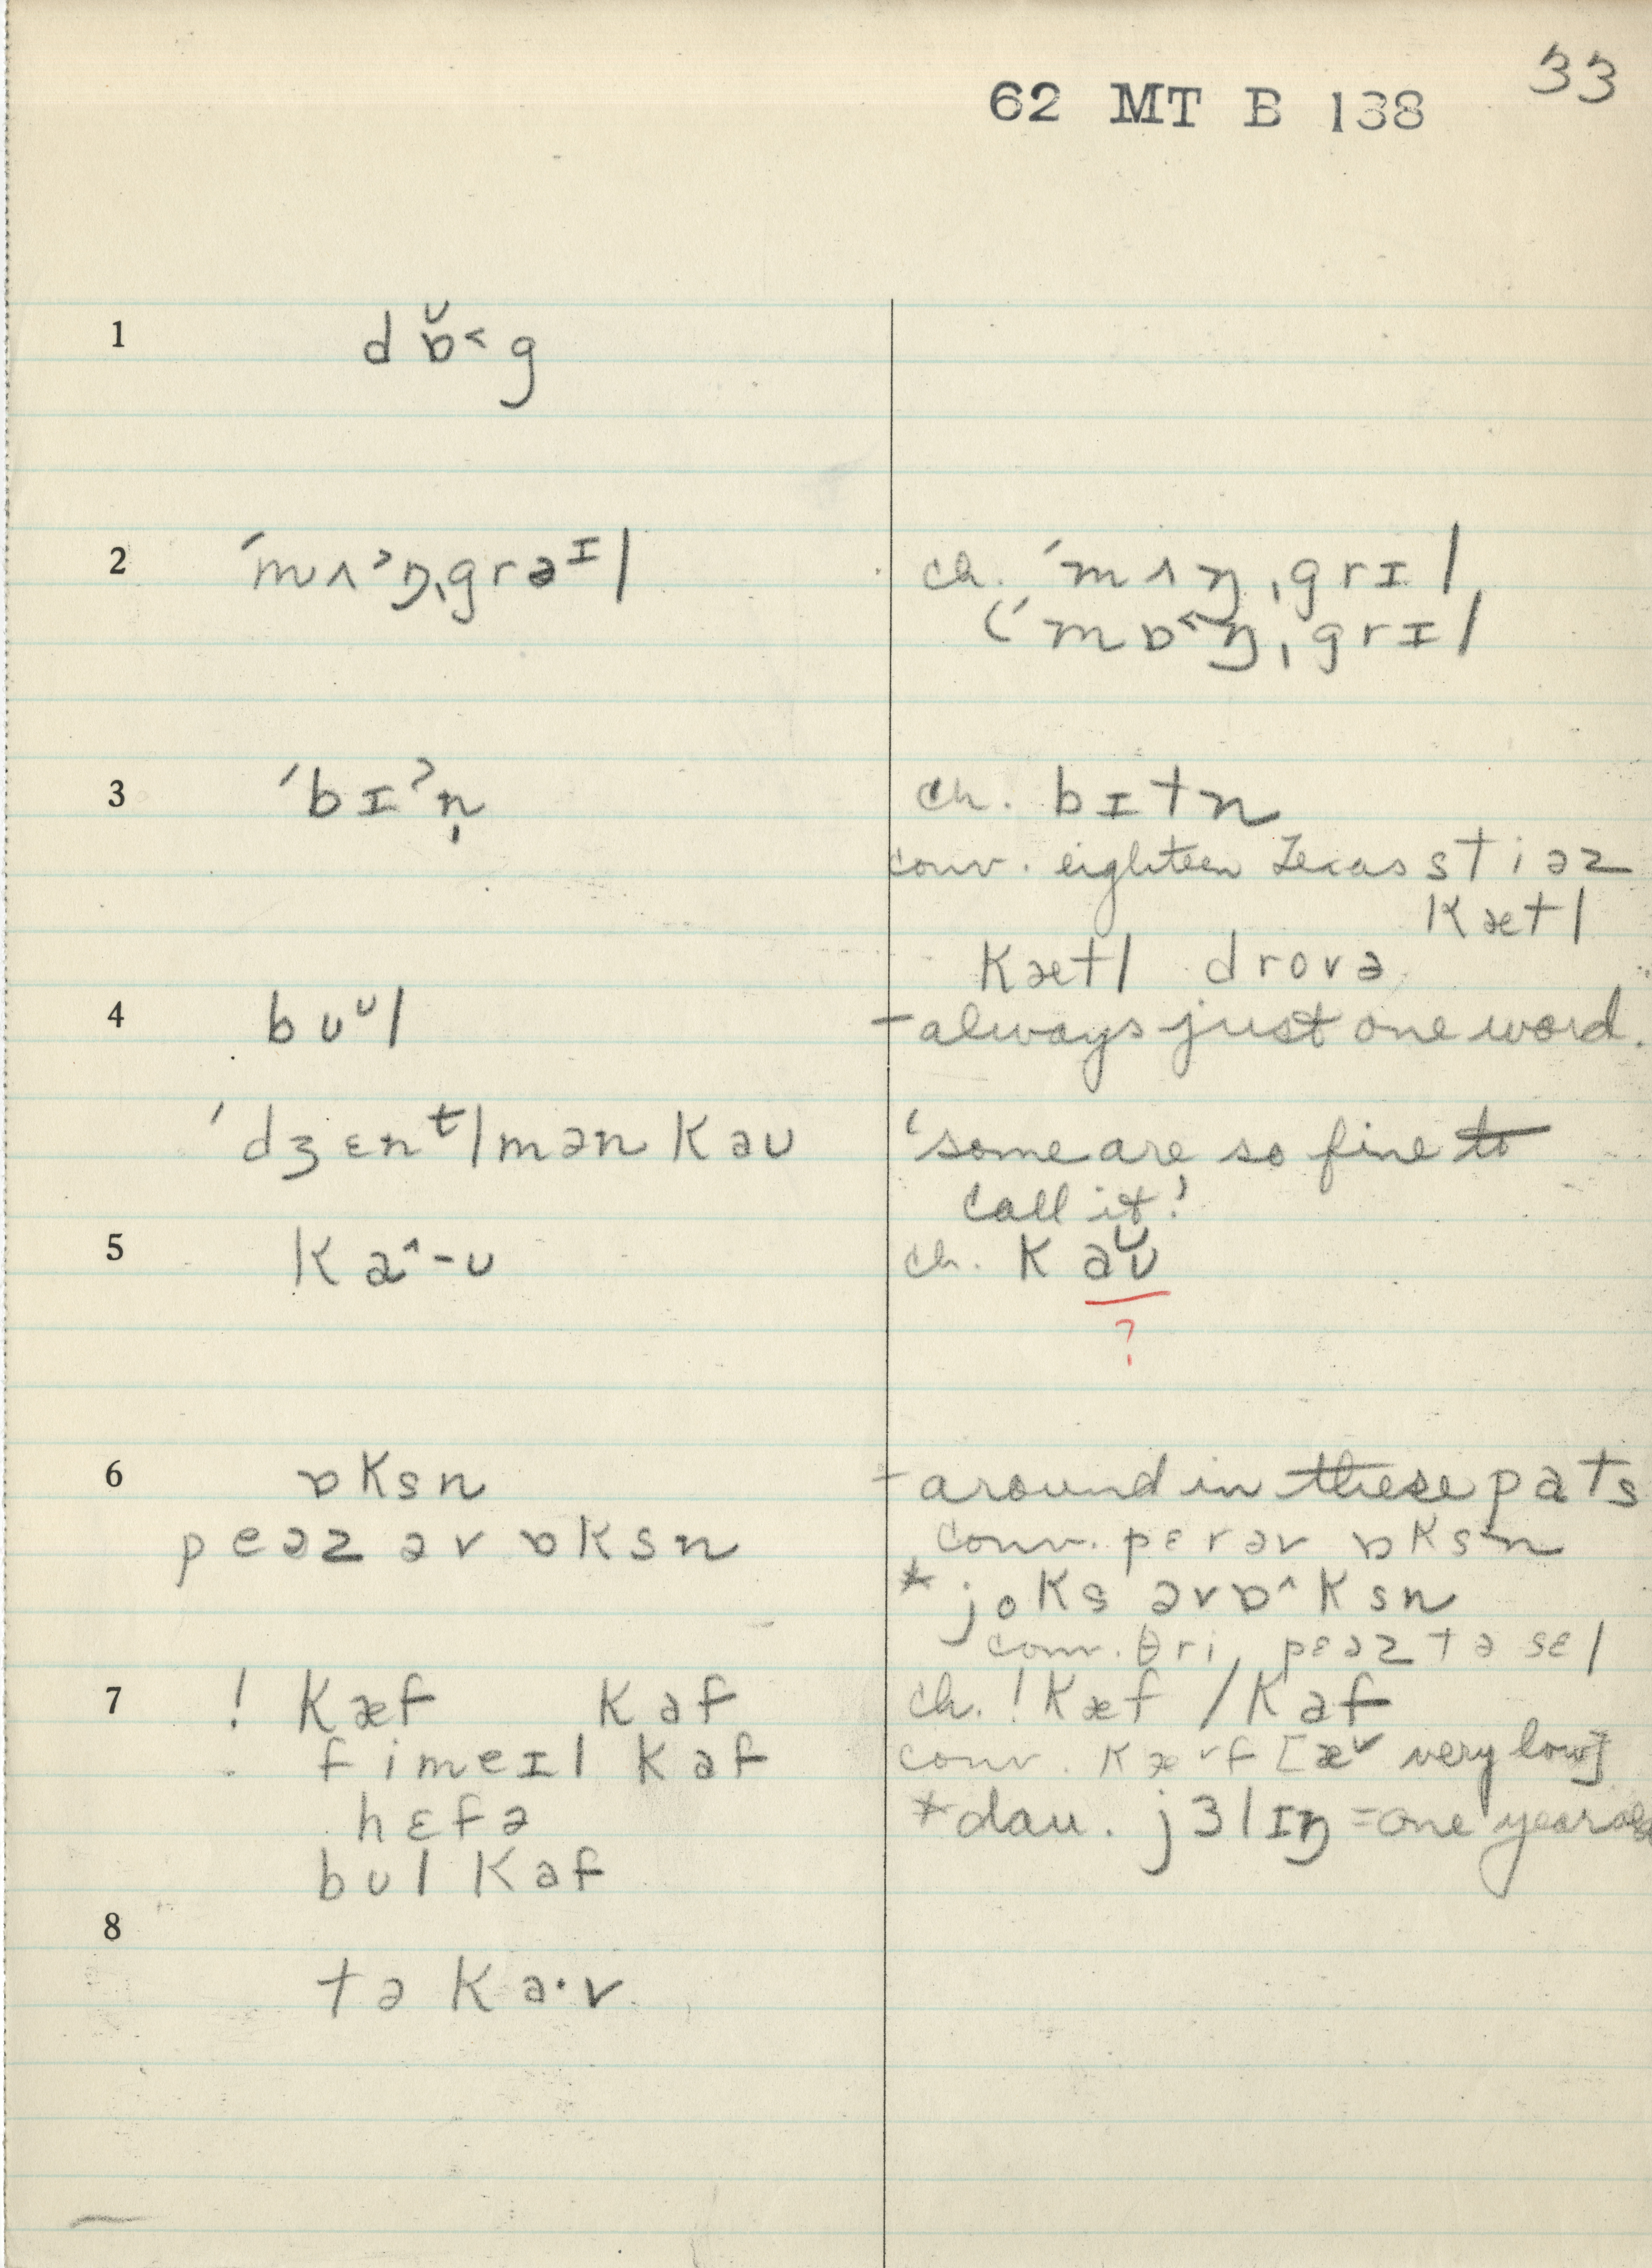 33
62 MT B 138
1 d ɒ̆˂ g
2 ˈmʌ˃ŋˌgrəᴵl ch. ˈmʌŋˌgrɪl
(ˈmɒ˂ŋˌgrɪl
3 ˈbɪˀn̩ ch. bɪtn
conv. eighteen Texas stiəz
kætl
kætl drovə
4 bʊᵁl – always just one word.
ˈdʒɛnᵗlmən kaʊ 'some are so fine to
call it!
5 ka^-ʊ ch. k aʊ̆
?
6 ɒksn – around in these pats
peəz əv ɒksn conv. pɛr əv ɒksn
* joks əv ɒ^ksn
conv. θri pɛəz tə sɛl
7 ! kæf kaf ch. ! kæf / kaf
fimeɪl kaf conv. kæ˅f [æ˅ very low]
hɛfə * dau. jɜlɪŋ = one year old
bʊl kaf
8
tə ka·v